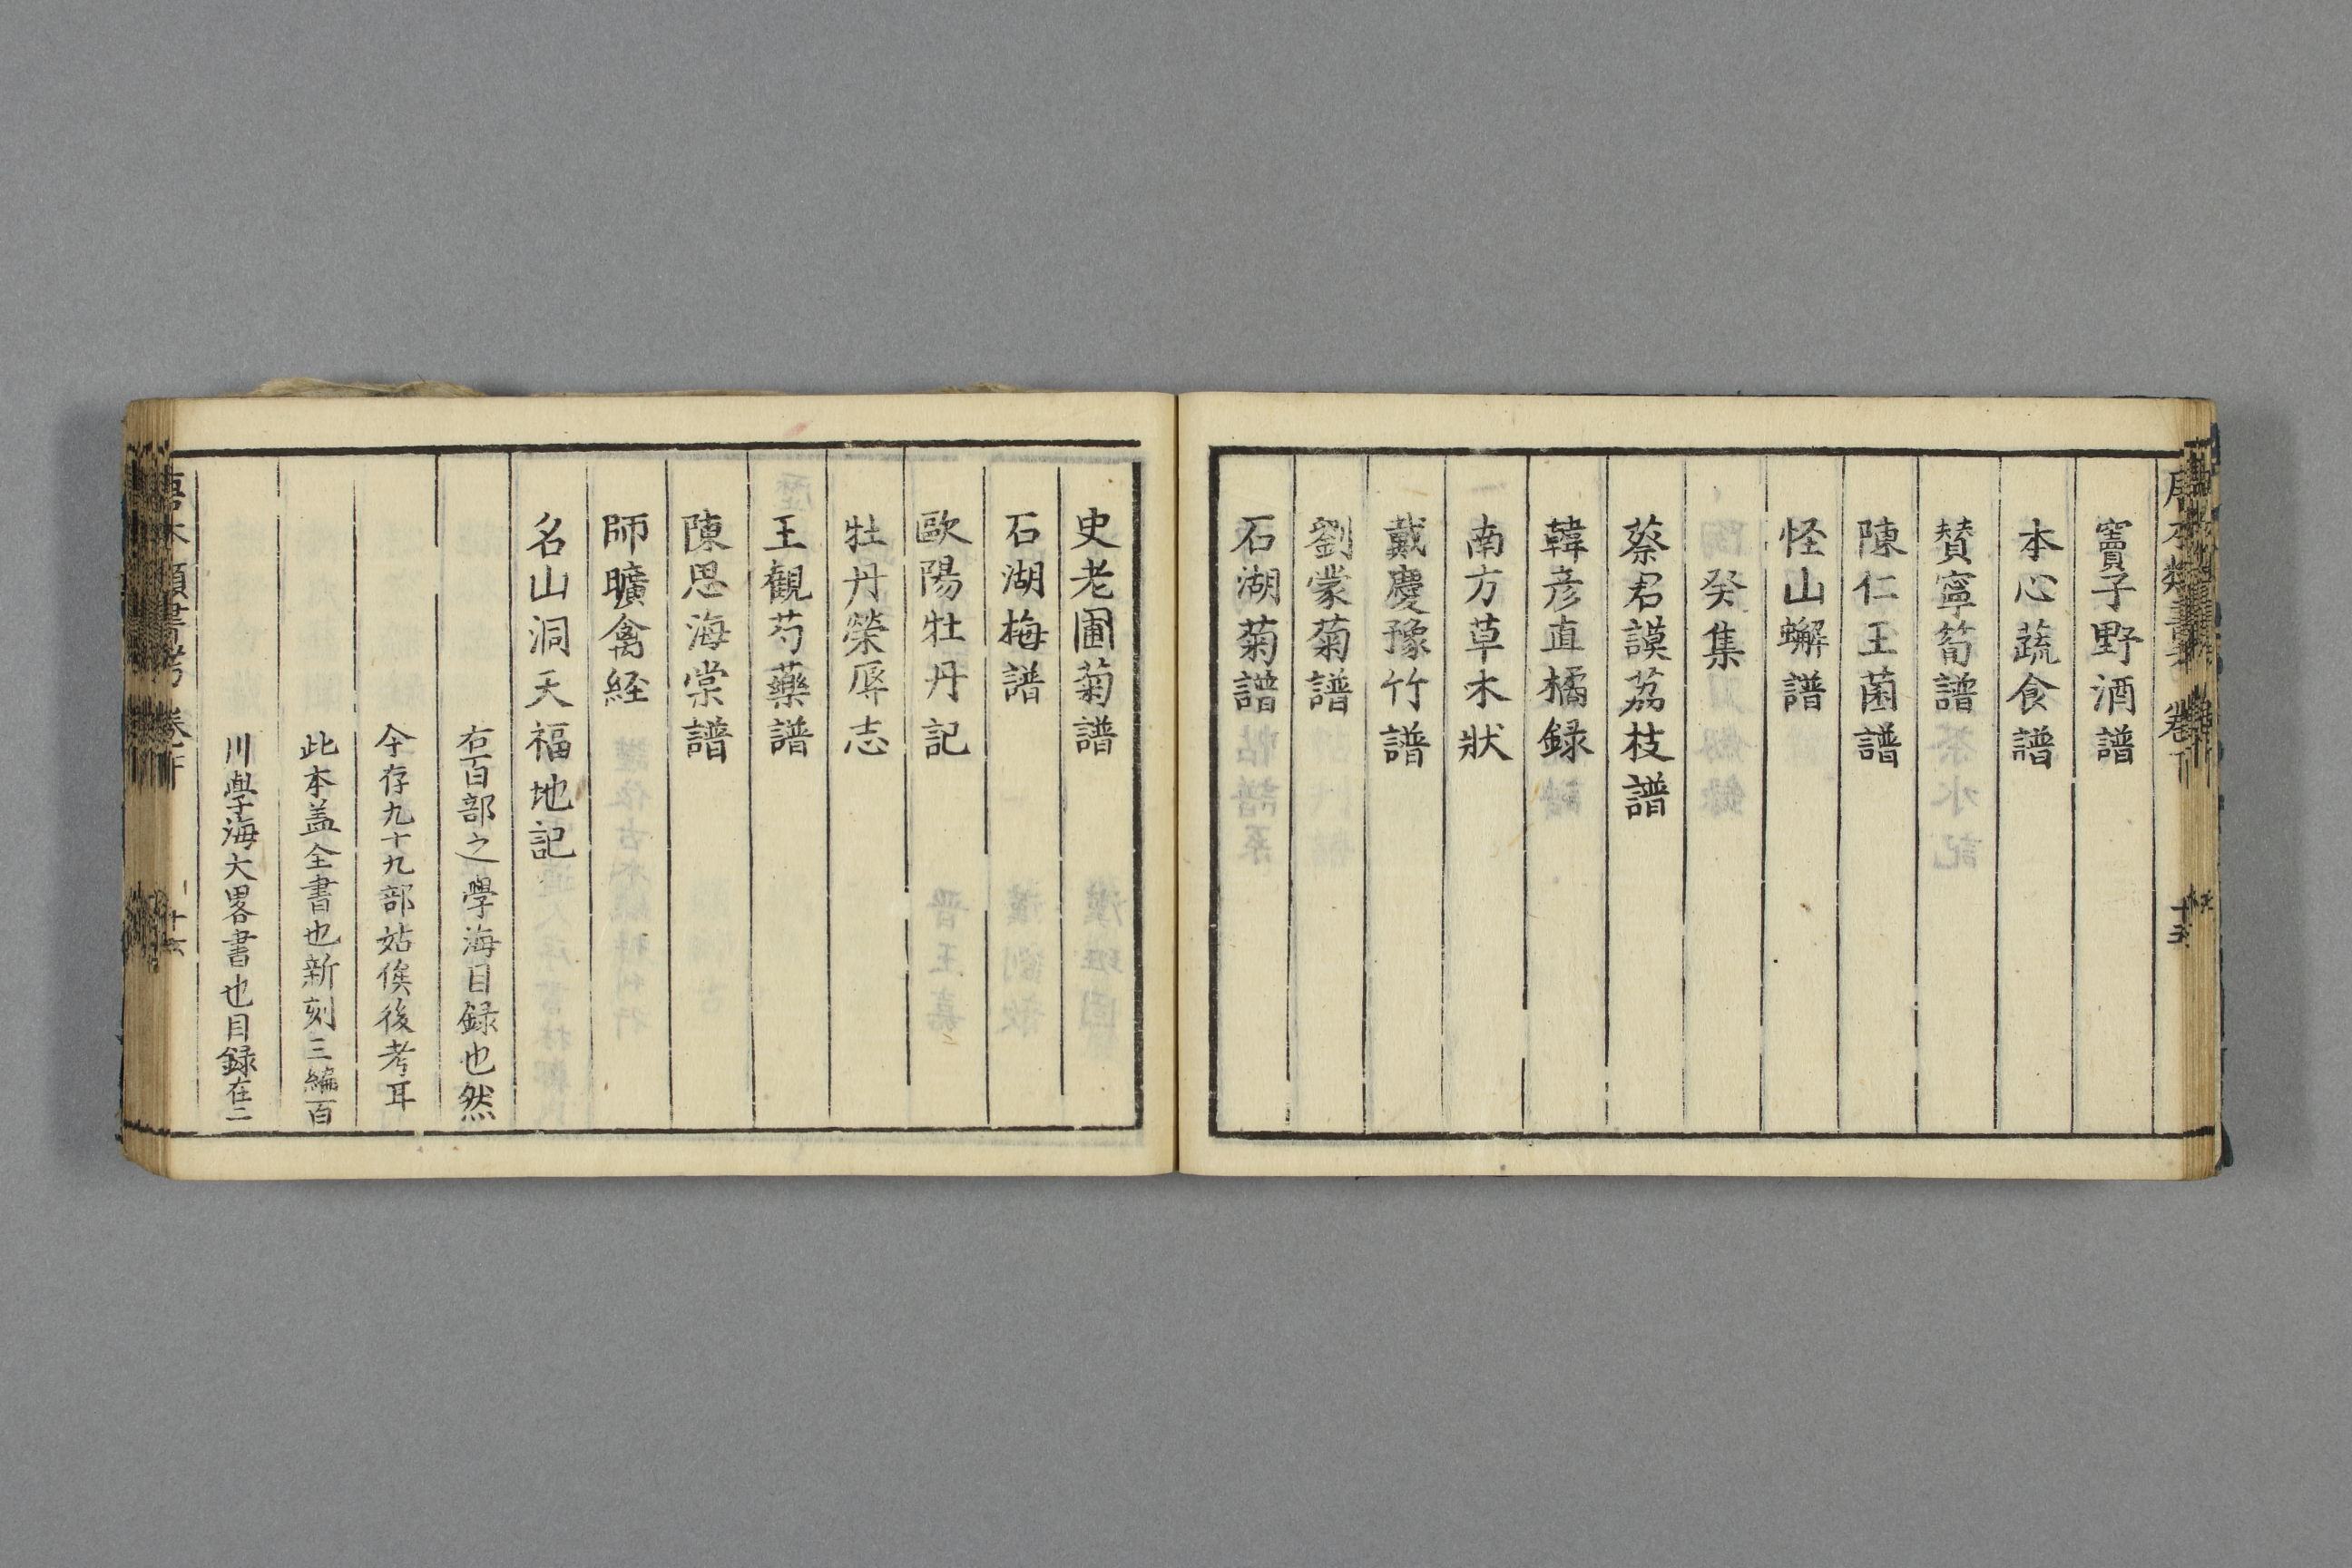 竇子野酒譜
本心蔬食譜
賛寧筍譜
陳仁玉菌譜
怪山蠏譜
癸集
蔡君謨茘枝譜
韓彦直橘録
南方草木狀
戴慶豫竹譜
劉蒙菊譜
石湖菊譜
史老圃菊譜
石湖梅譜
歐陽牡丹記
牡丹榮辱志
王觀芍藥譜
陳思海棠譜
師曠禽経
名山洞天福地記
右百部之學海目録也然
今存九十九部姑俟後考耳
此本盖全書也新刻三編百
川學海大畧書也目録在二